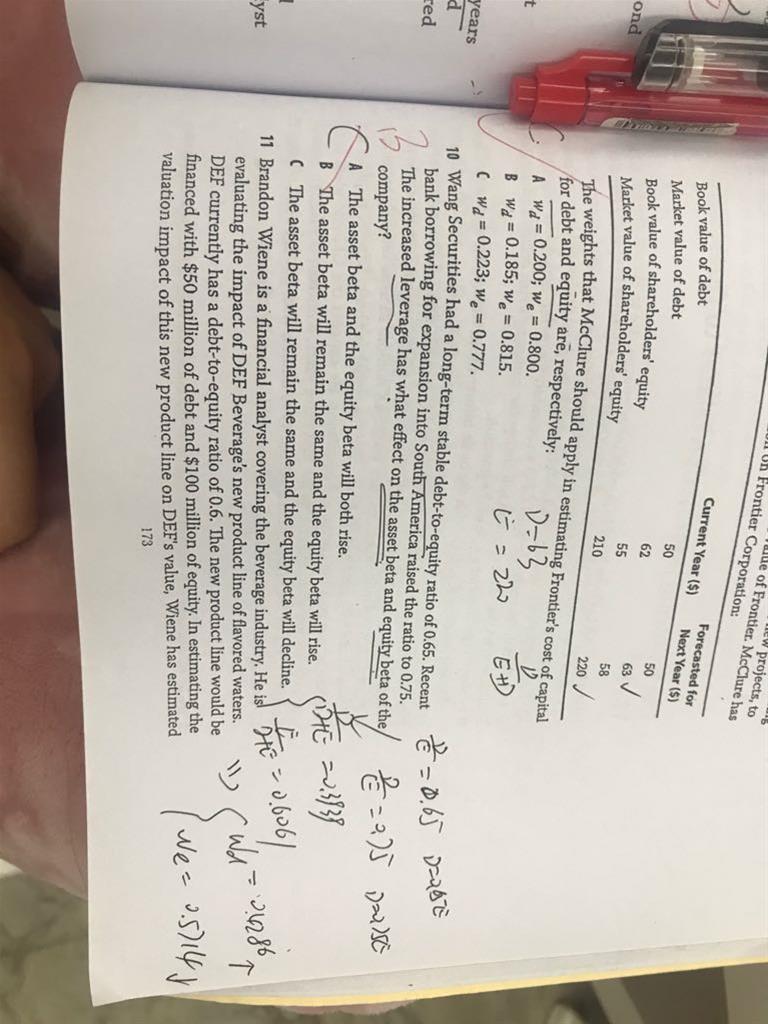 years
d
red
t
ond
lyst
value of Frontier. McClure has
on Frontier Corporation:
new projects, to
Current Year ($)
Forecasted for
Next Year ($)
Book value of debt 50 50
Market value of debt 62 63 ✓
Book value of shareholders' equity 55 58
Market value of shareholders' equity 210 220 ✓
The weights that McClure should apply in estimating Frontier's cost of capital
for debt and equity are, respectively:
A wd = 0.200; we = 0.800.
B wd = 0.185; we = 0.815.
C wd = 0.223; we = 0.777.
D=63
E = 220
D
E+D
C
10 Wang Securities had a long-term stable debt-to-equity ratio of 0.65. Recent
bank borrowing for expansion into South America raised the ratio to 0.75.
The increased leverage has what effect on the asset beta and equity beta of the
company?
A The asset beta and the equity beta will both rise.
B The asset beta will remain the same and the equity beta will rise.
C The asset beta will remain the same and the equity beta will decline.
B
D/E = 0.65 D=0.65E
D/E = 0.75 D=0.75E
D/D+E = 0.3939
E/D+E = 0.6061
⇒ { Wd = 0.4286 ↑
We = 0.5714 ↓
11 Brandon Wiene is a financial analyst covering the beverage industry. He is
evaluating the impact of DEF Beverage's new product line of flavored waters.
DEF currently has a debt-to-equity ratio of 0.6. The new product line would be
financed with $50 million of debt and $100 million of equity. In estimating the
valuation impact of this new product line on DEF's value, Wiene has estimated
173